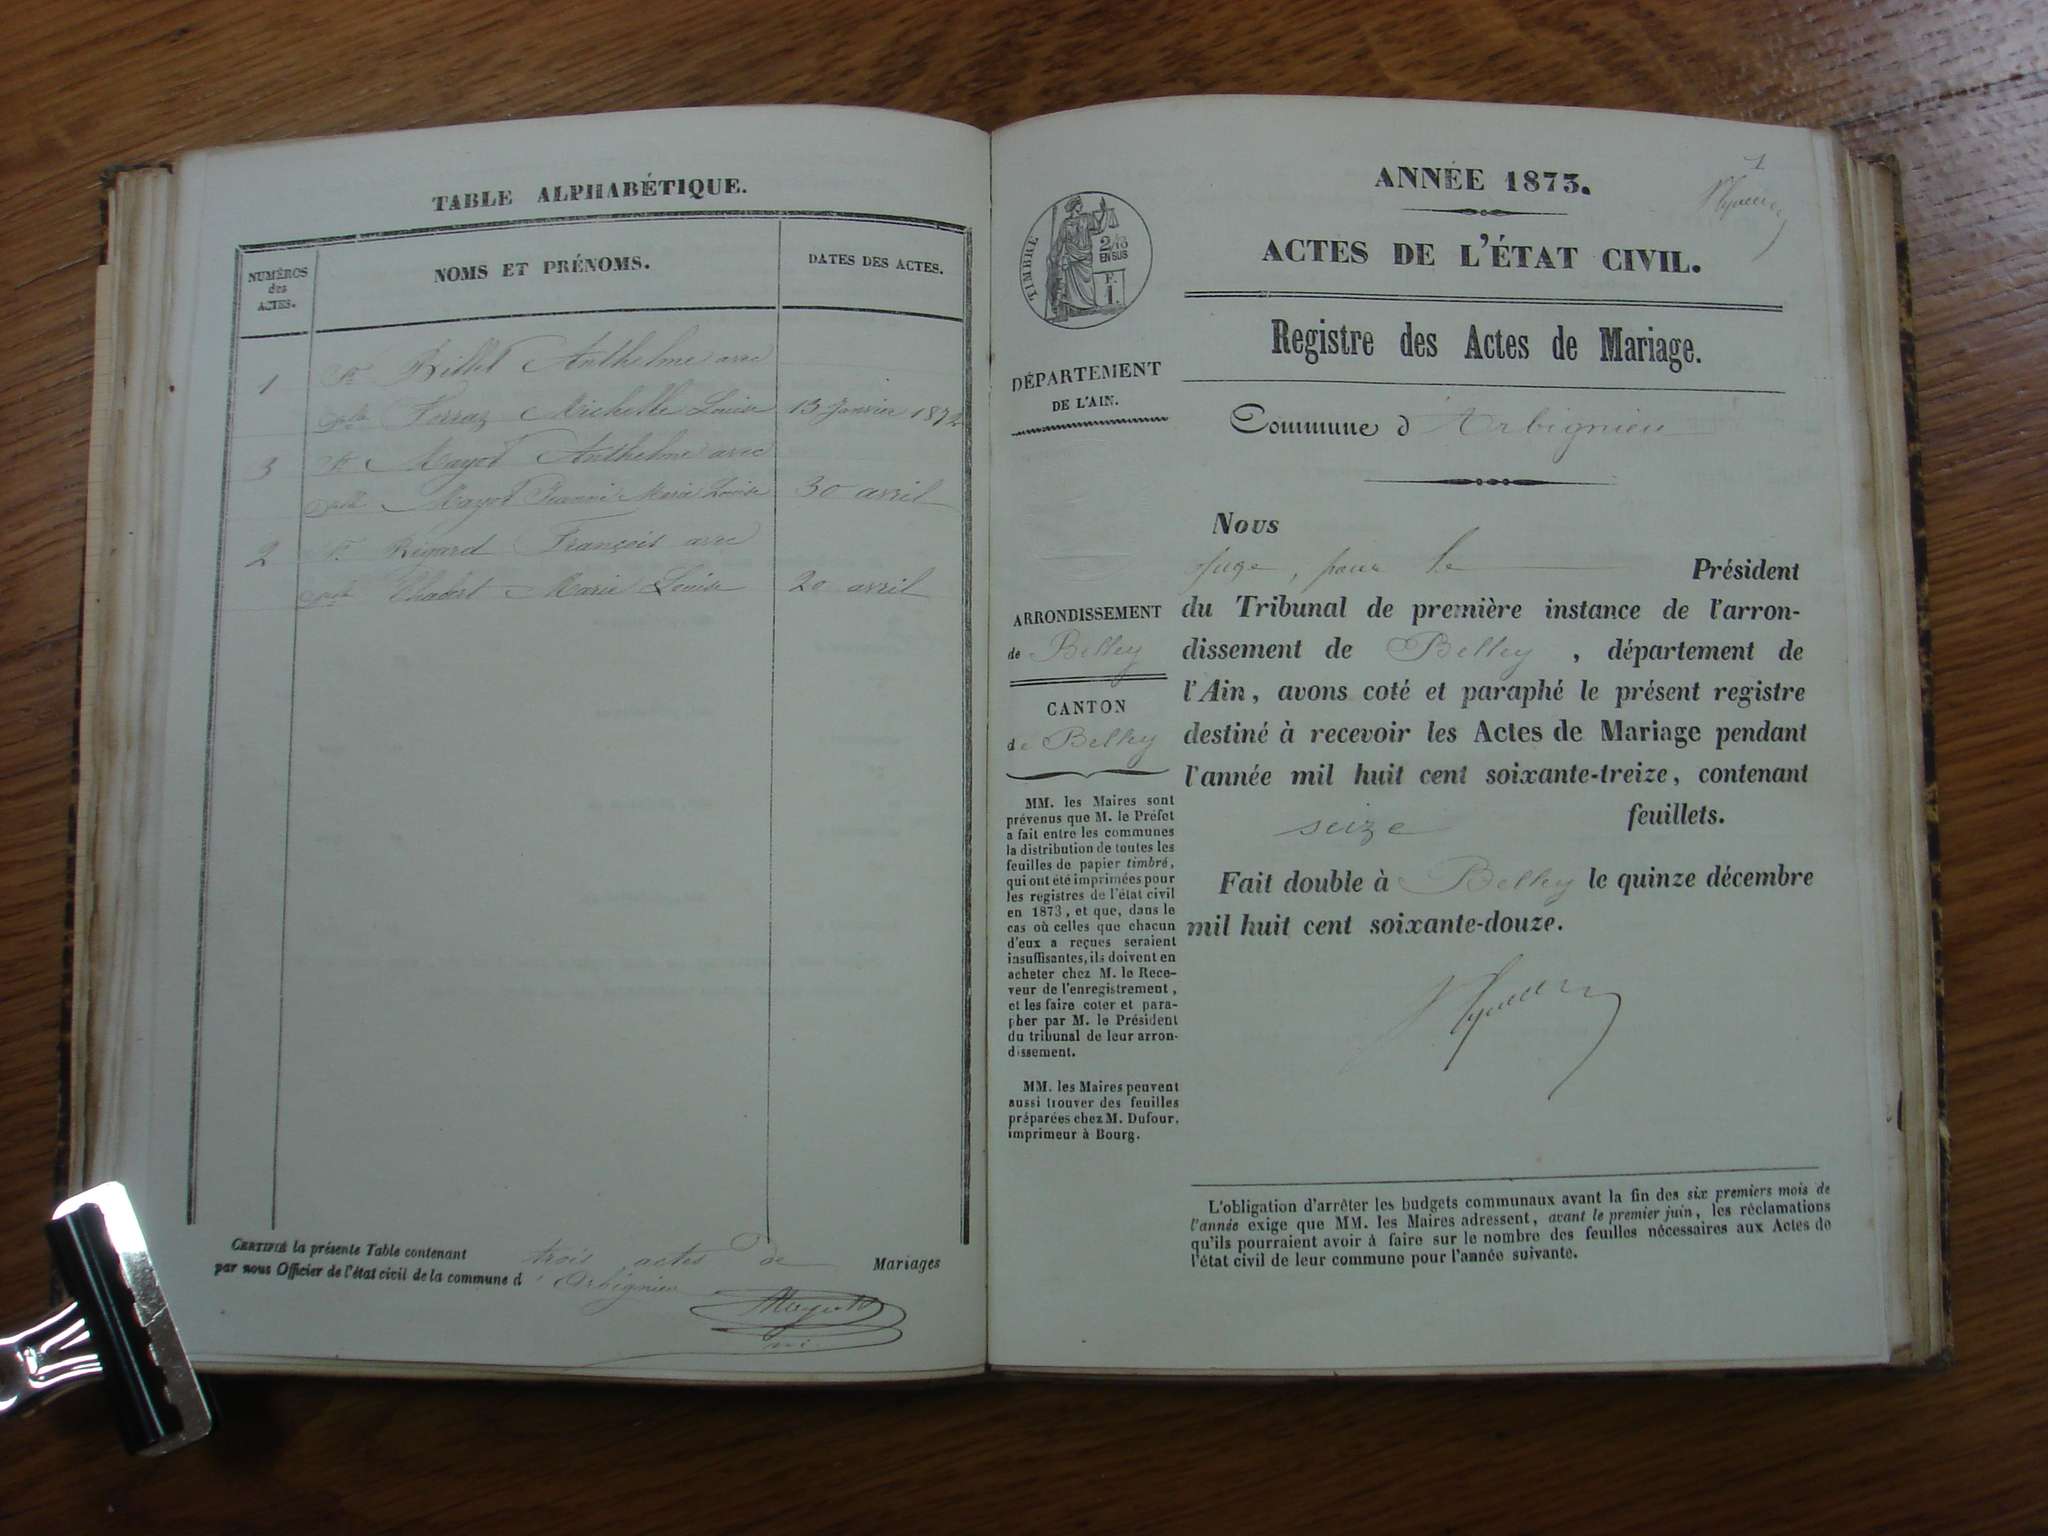 TABLE ALPHABÉTIQUE.
NUMÉROS
des
ACTES.
NOMS ET PRÉNOMS.
DATES DES ACTES.
1
Billet Anthelme avec
Ferraz Michelle Louise 13 Janvier 1872
3
Mayot Anthelme avec
Mayot Jeanne Marie Louise 30 avril
2
Rigard François avec
Chabert Marie Louise 20 avril
CERTIFIÉ la présente Table contenant trois actes de Mariages
par nous Officier de l'état civil de la commune d' Arbignieu
1
ANNÉE 1873.
ACTES DE L'ÉTAT CIVIL.
TIMBRE
2/10
EN SUS
F.
1.
Registre des Actes de Mariage.
DÉPARTEMENT
DE L'AIN.
Commune d'Arbignieu
Nous
juge, pour le Président
du Tribunal de première instance de l'arron-
dissement de Belley, département de
l'Ain, avons coté et paraphé le présent registre
destiné à recevoir les Actes de Mariage pendant
l'année mil huit cent soixante-treize, contenant
seize feuillets.
Fait double à Belley le quinze décembre
mil huit cent soixante-douze.
ARRONDISSEMENT
de Belley
CANTON
de Belley
MM. les Maires sont
prévenus que M. le Préfet
a fait entre les communes
la distribution de toutes les
feuilles de papier timbré,
qui ont été imprimées pour
les registres de l'état civil
en 1873, et que, dans le
cas où celles que chacun
d'eux a reçues seraient
insuffisantes, ils doivent en
acheter chez M. le Rece-
veur de l'enregistrement,
et les faire coter et para-
pher par M. le Président
du tribunal de leur arron-
dissement.
MM. les Maires peuvent
aussi trouver des feuilles
préparées chez M. Dufour,
imprimeur à Bourg.
L'obligation d'arrêter les budgets communaux avant la fin des six premiers mois de
l'année exige que MM. les Maires adressent, avant le premier juin, les réclamations
qu'ils pourraient avoir à faire sur le nombre des feuilles nécessaires aux Actes de
l'état civil de leur commune pour l'année suivante.